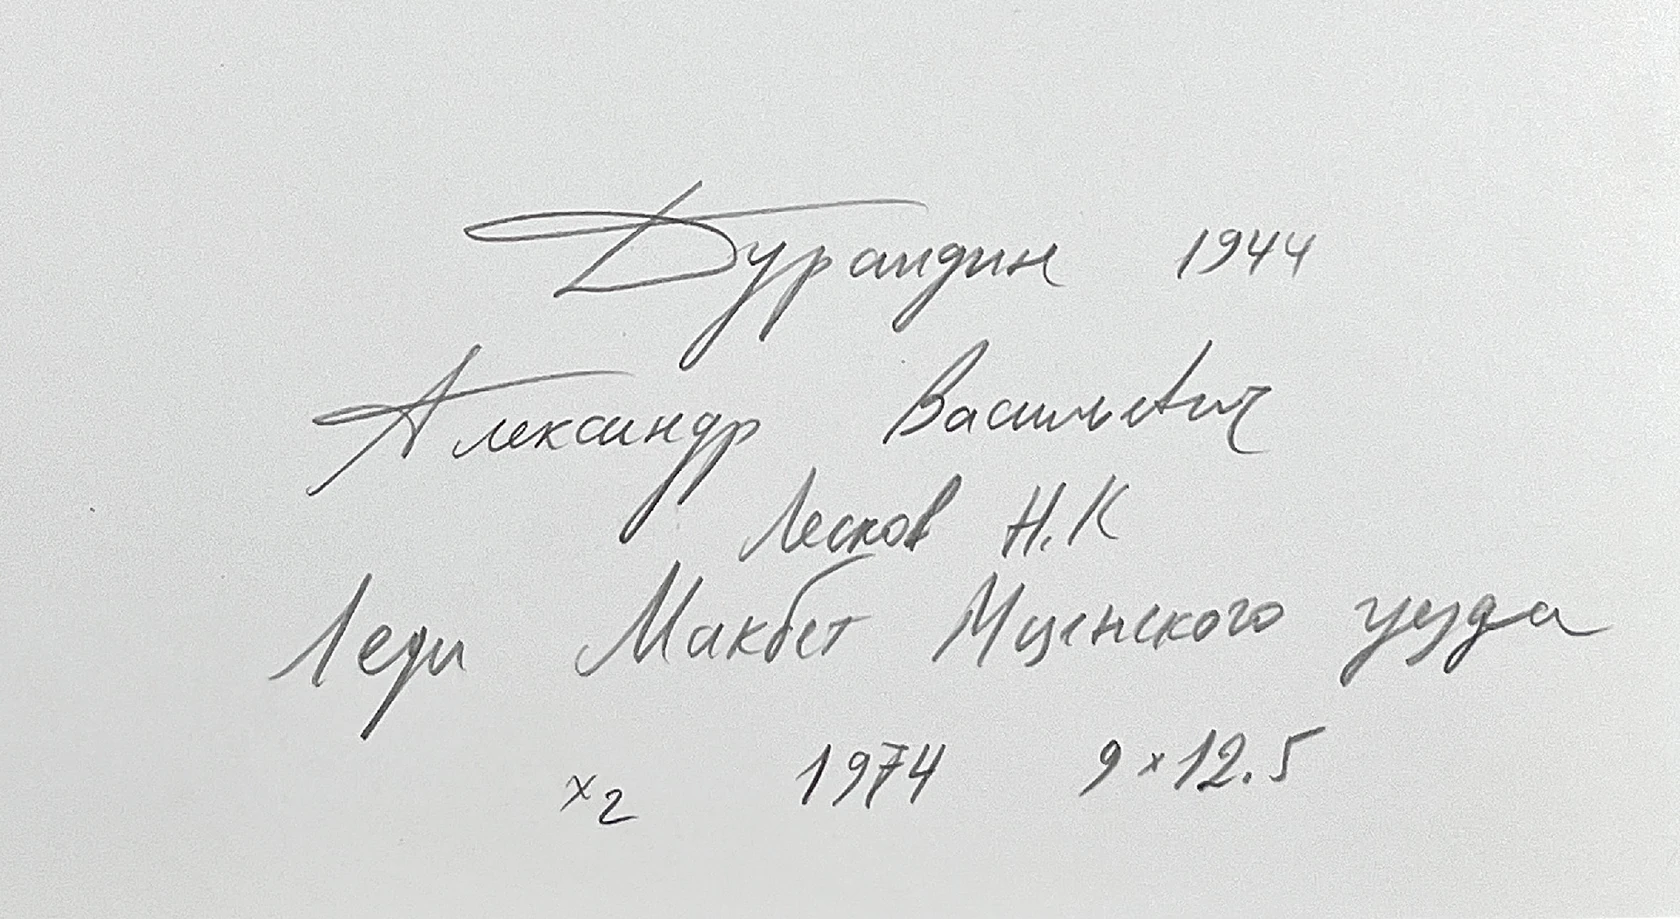 Дурандин 1944
Александр Васильевич
Лесков Н.К
Леди Макбет Мценского уезда
х2 1974 9×12.5